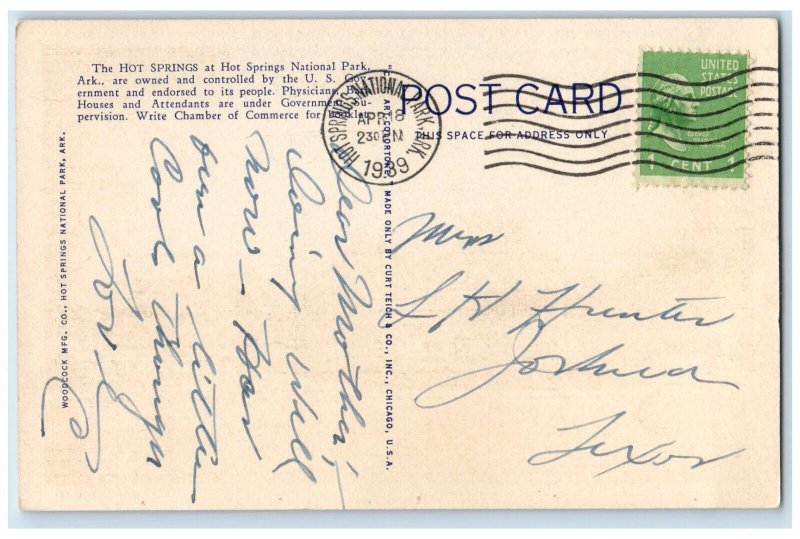 The HOT SPRINGS at Hot Springs National Park,
Ark., are owned and controlled by the U. S. Gov-
ernment and endorsed to its people. Physicians, Bath
Houses and Attendants are under Government Su-
pervision. Write Chamber of Commerce for booklet.
WOODCOCK MFG. CO., HOT SPRINGS NATIONAL PARK, ARK.
Dear Mother,
Doing Well
now - Has
been a little
Cool though
Love
"C. T. ART-COLORTONE" MADE ONLY BY CURT TEICH & CO., INC., CHICAGO, U.S.A.
HOT SPRINGS NATIONAL PARK, ARK.
APR 8
230 PM
1939
POST CARD
THIS SPACE FOR ADDRESS ONLY
UNITED
STATES
POSTAGE
1 CENT 1
Mrs
L H Hunter
Joshua
Texas